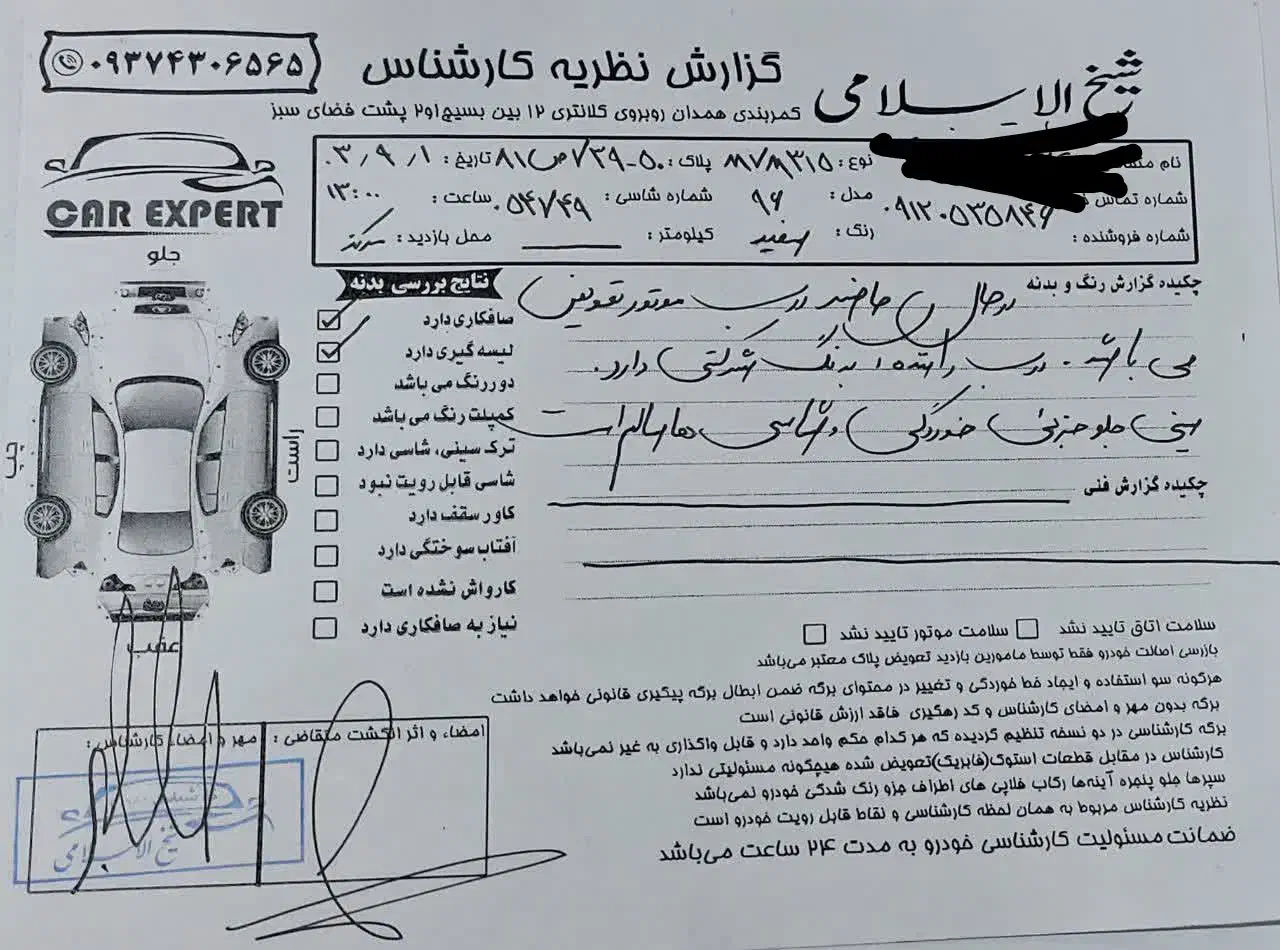 شیخ الاسلامی
گزارش نظریه کارشناس
۰۹۳۷۴۳۰۶۵۶۵
کمربندی همدان روبروی کلانتری ۱۲ بین بسیج۱و۲ پشت فضای سبز
CAR EXPERT
نوع: پلاک: تاریخ: ۰۳/۹/۱
شماره تماس ۰۹۱۲۰۵۳۵۸۴۶ مدل: ۹۶ شماره شاسی: ۰۵۴۷۴۹ ساعت: ۱۳:۰۰
شماره فروشنده: رنگ: سفید کیلومتر: محل بازدید: مرکز
چکیده گزارش رنگ و بدنه در حال حاضر درب موتور تعویض
می باشد. درب راننده رنگ شرکتی دارد.
سینی جلو جزئی خوردگی و شاسی ها سالم است
چکیده گزارش فنی
نتایج بررسی بدنه
صافکاری دارد
لیسه گیری دارد
دوررنگ می باشد
کمپلت رنگ می باشد
ترک سینی، شاسی دارد
شاسی قابل رویت نبود
کاور سقف دارد
آفتاب سوختگی دارد
کارواش نشده است
نیاز به صافکاری دارد
جلو
راست
چپ
عقب
سلامت اتاق تایید نشد سلامت موتور تایید نشد
بازرسی اصالت خودرو فقط توسط مامورین بازدید تعویض پلاک معتبر می‌باشد
هرگونه سو استفاده و ایجاد خط خوردگی و تغییر در محتوای برگه ضمن ابطال برگه پیگیری قانونی خواهد داشت
برگه بدون مهر و امضای کارشناس و کد رهگیری فاقد ارزش قانونی است
برگه کارشناسی در دو نسخه تنظیم گردیده که هر کدام حکم واحد دارد و قابل واگذاری به غیر نمی‌باشد
کارشناس در مقابل قطعات استوک(فابریک)تعویض شده هیچگونه مسئولیتی ندارد
سپرها جلو پنجره آینه‌ها رکاب فلاپی های اطراف جزو رنگ شدگی خودرو نمی‌باشد
نظریه کارشناس مربوط به همان لحظه کارشناسی و نقاط قابل رویت خودرو است
ضمانت مسئولیت کارشناسی خودرو به مدت ۲۴ ساعت می‌باشد
امضاء و اثر انگشت متقاضی:
مهر و امضاء کارشناس:
شیخ الاسلامی